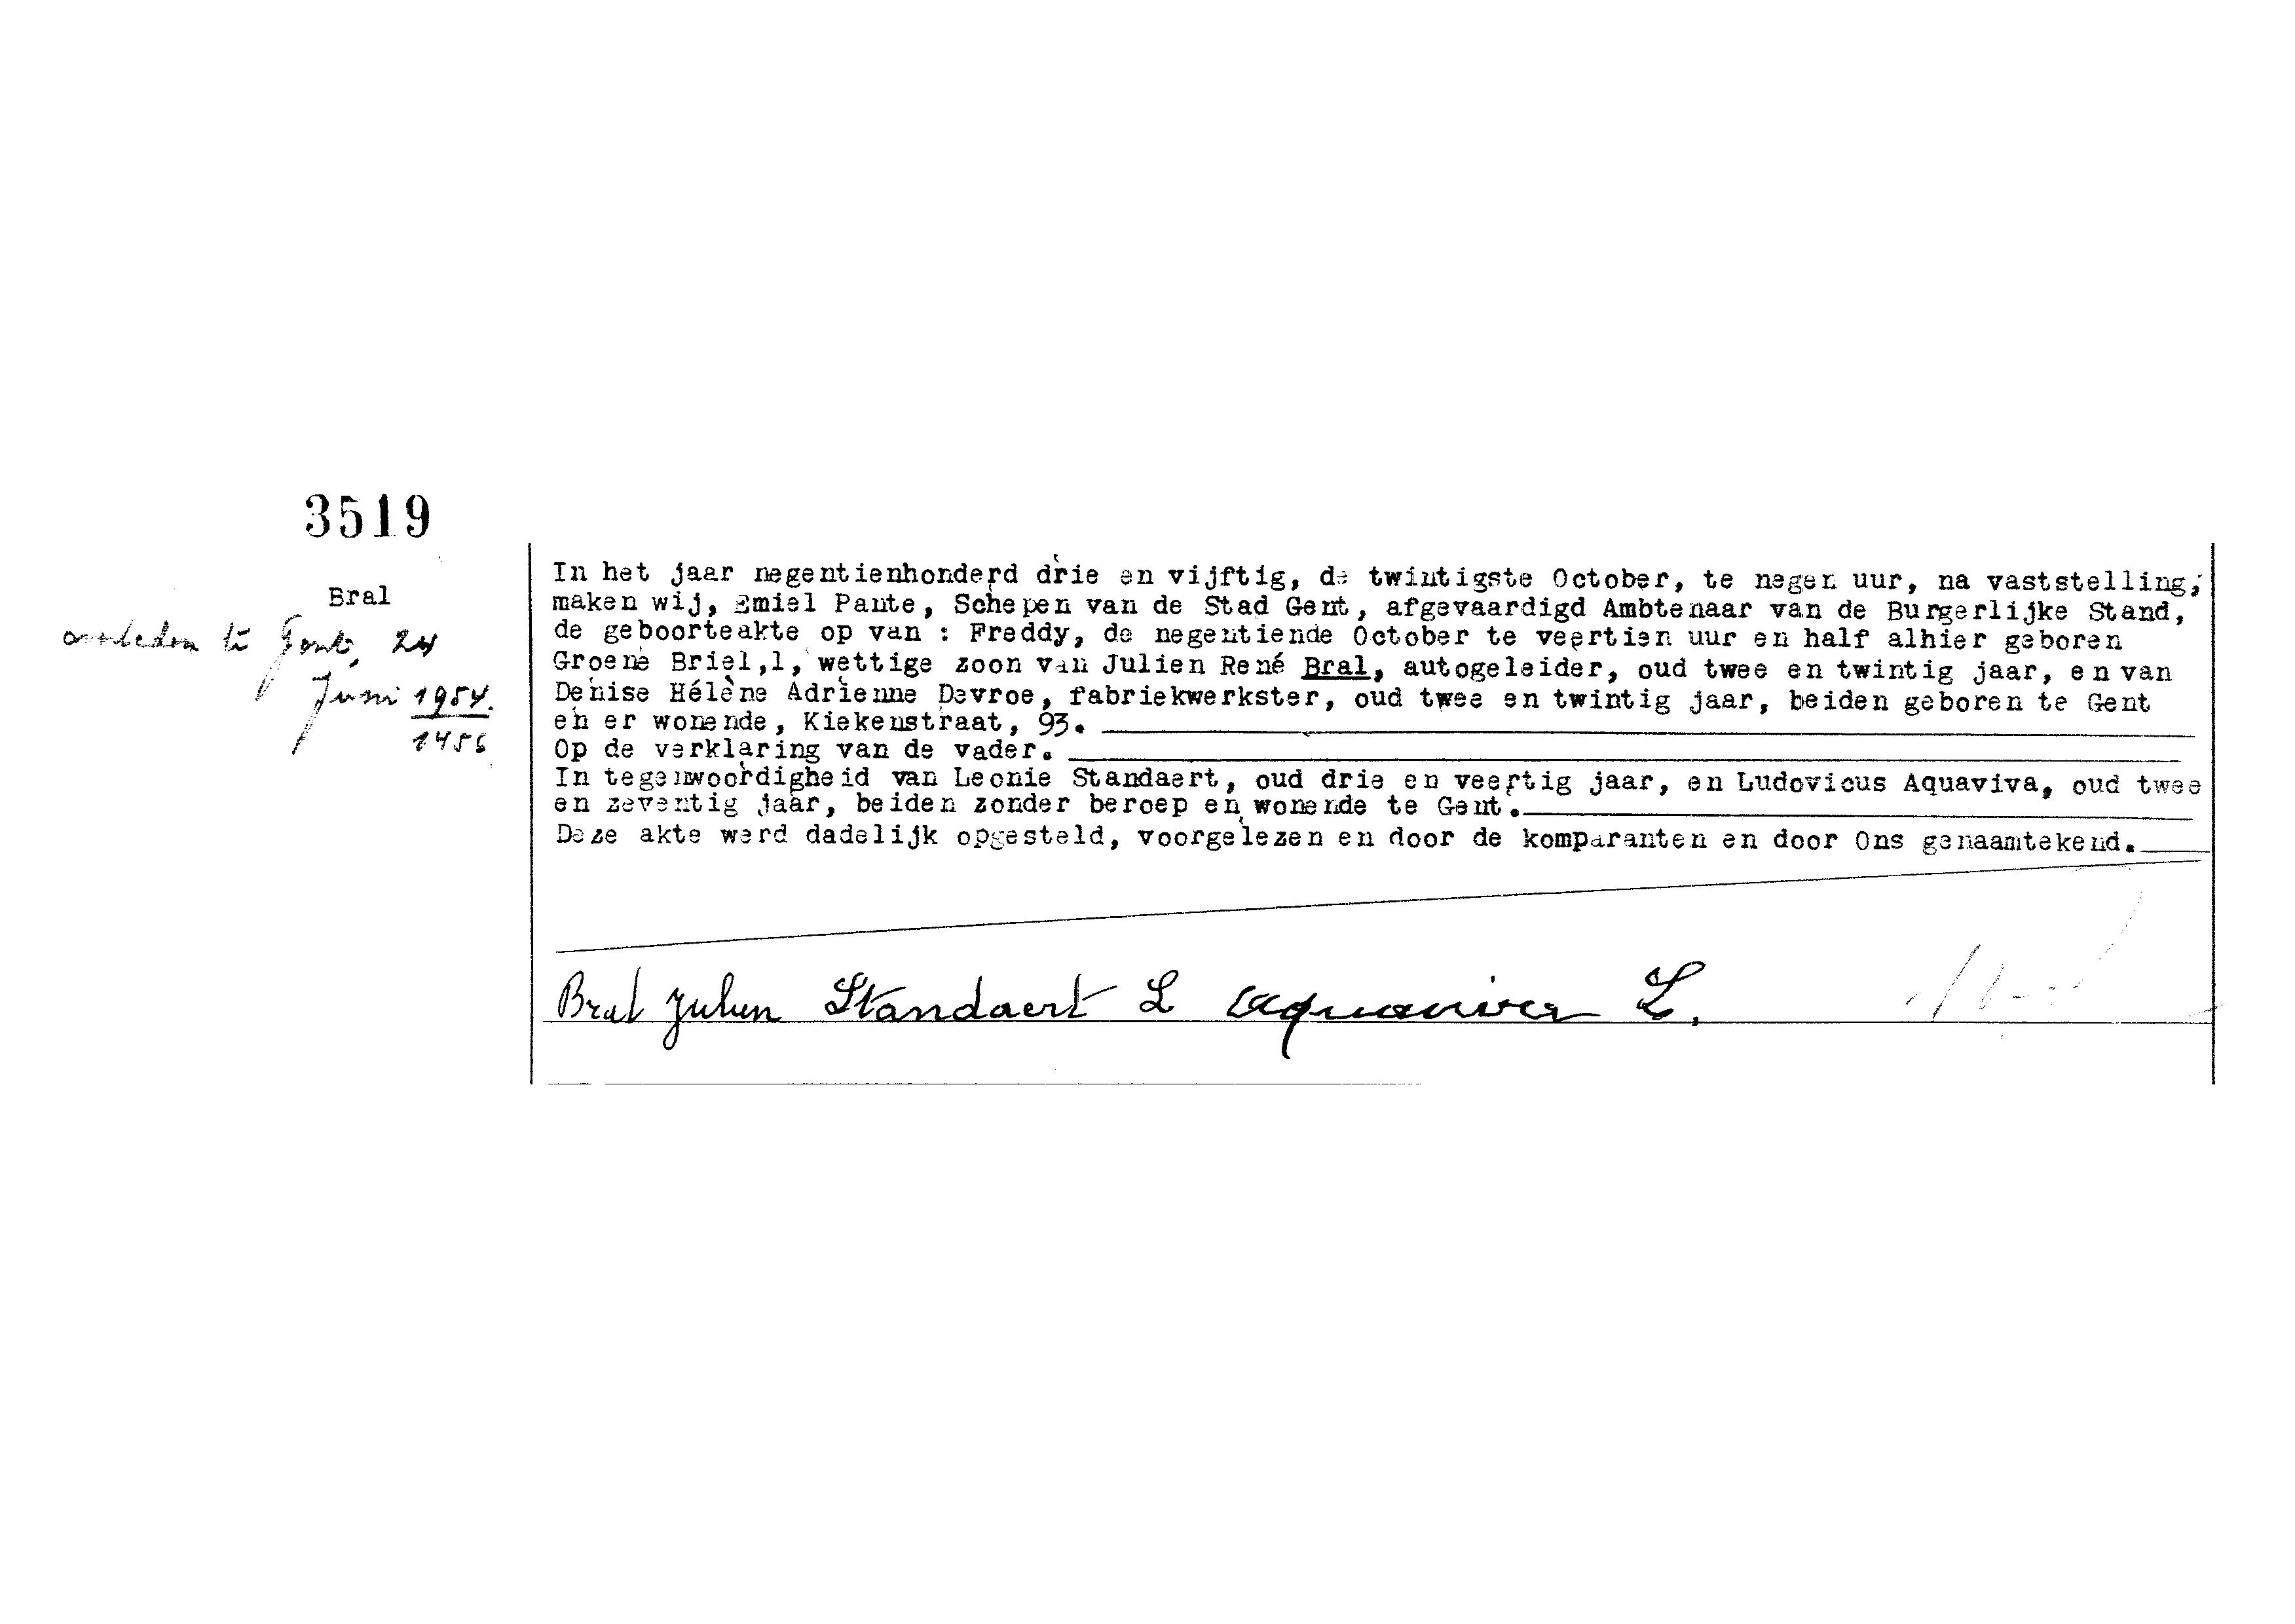 3519
Bral
overleden te Gent, 24
Juni 1954.
1456
In het jaar negentienhonderd drie en vijftig, de twintigste October, te negen uur, na vaststelling,
maken wij, Emiel Pante, Schepen van de Stad Gent, afgevaardigd Ambtenaar van de Burgerlijke Stand,
de geboorteakte op van : Freddy, de negentiende October te veertien uur en half alhier geboren
Groene Briel,1, wettige zoon van Julien René Bral, autogeleider, oud twee en twintig jaar, en van
Denise Hélène Adrienne Devroe, fabriekwerkster, oud twee en twintig jaar, beiden geboren te Gent
en er wonende, Kiekenstraat, 93.
Op de verklaring van de vader.
In tegenwoordigheid van Leonie Standaert, oud drie en veertig jaar, en Ludovicus Aquaviva, oud twee
en zeventig jaar, beiden zonder beroep en wonende te Gent.
Deze akte werd dadelijk opgesteld, voorgelezen en door de komparanten en door Ons genaamtekend.
Bral Julien Standaert L Aquaviva L.